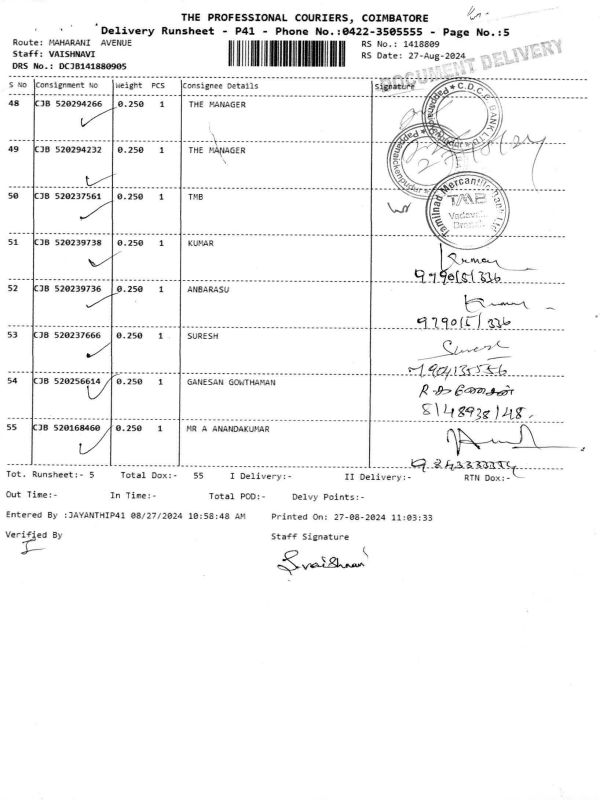 THE PROFESSIONAL COURIERS, COIMBATORE
Delivery Runsheet - P41 - Phone No.:0422-3505555 - Page No.:5
Route: MAHARANI AVENUE
RS No.: 1418809
Staff: VAISHNAVI
RS Date: 27-Aug-2024
DRS No.: DCJB141880905
DOCUMENT DELIVERY
S No Consignment No Weight PCS Consignee Details Signature
48 CJB 520294266 0.250 1 THE MANAGER
C.D.C.C. BANK LTD
Pappanaickenpudur
49 CJB 520294232 0.250 1 THE MANAGER
Pappanaickenpudur
50 CJB 520237561 0.250 1 TMB
Tamilnad Mercantile Bank Ltd
TMB
51 CJB 520239738 0.250 1 KUMAR
Kumar
52 CJB 520239736 0.250 1 ANBARASU
Kumar
53 CJB 520237666 0.250 1 SURESH
Suresh
54 CJB 520256614 0.250 1 GANESAN GOWTHAMAN
8148938148.
55 CJB 520168460 0.250 1 MR A ANANDAKUMAR
Tot. Runsheet:- 5 Total Dox:- 55 I Delivery:- II Delivery:- RTN Dox:-
Out Time:- In Time:- Total POD:- Delvy Points:-
Entered By :JAYANTHIP41 08/27/2024 10:58:48 AM Printed On: 27-08-2024 11:03:33
Verified By Staff Signature
S.vaishnavi